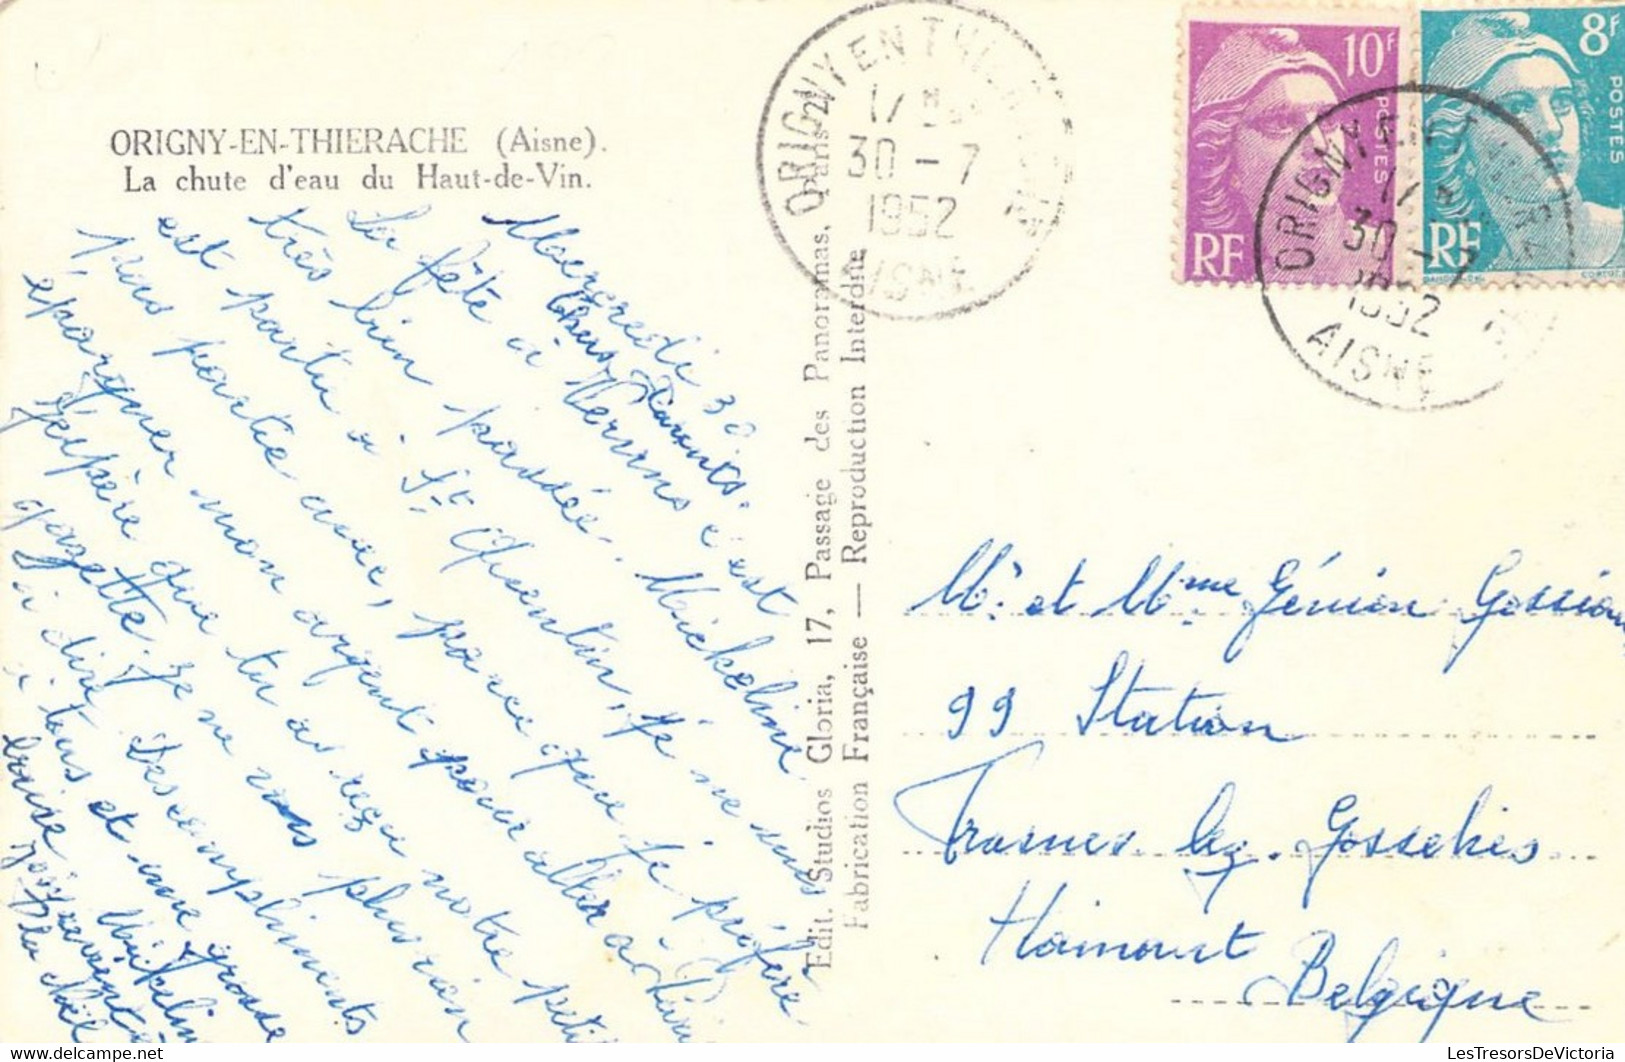 ORIGNY-EN-THIERACHE (Aisne).
La chute d'eau du Haut-de-Vin.
Mercredi 30
Chers Parents.
La fête à Vervins c'est
très bien passée. Mickeline
est partu à St Quentin, je ne suis
pas partie avec, parce que je préfère
épargner mon argent pour aller à
J'espère que tu as reçu notre petite
gazette. Je ne vois plus rien
à dire. Des compliments
à tous et une grosse
baise Mickeline
Edit. Studios Gloria, 17, Passage des Panoramas, Paris 2
Fabrication Française — Reproduction Interdite
ORIGNY EN THIERACHE
17 H
30 - 7
1952
AISNE
10F
POSTES
RF
8F
POSTES
RF
ORIGNY EN THIERACHE
17 H
30 - 7
1952
AISNE
Mr. et Mme Génion
99 Station
Frasnes lez. Gosselies
Hainaut
Belgique
LesTresorsDeVictoria